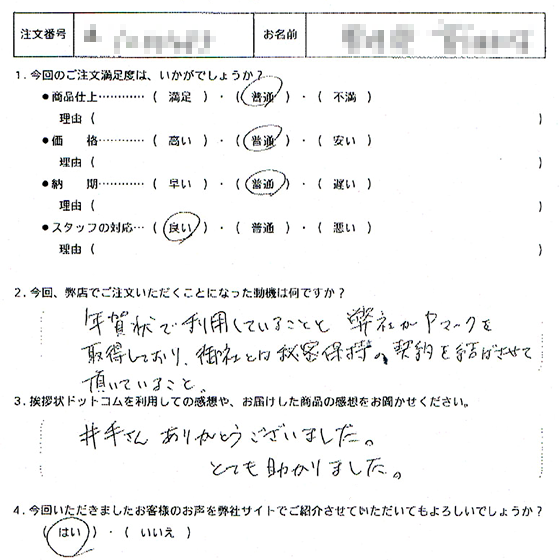 注文番号 お名前
1. 今回のご注文満足度は、いかがでしょうか?
●商品仕上………… ( 満足 ) ・ ( 普通 ) ・ ( 不満 )
理由 ( )
●価 格………… ( 高い ) ・ ( 普通 ) ・ ( 安い )
理由 ( )
●納 期………… ( 早い ) ・ ( 普通 ) ・ ( 遅い )
理由 ( )
●スタッフの対応… ( 良い ) ・ ( 普通 ) ・ ( 悪い )
理由 ( )
2. 今回、弊店でご注文いただくことになった動機は何ですか?
年賀状で利用していることと 弊社がPマークを
取得しており、御社とは秘密保持の契約を結ばさせて
頂いていること。
3. 挨拶状ドットコムを利用しての感想や、お届けした商品の感想をお聞かせください。
井手さん ありがとうございました。
とても助かりました。
4. 今回いただきましたお客様のお声を弊社サイトでご紹介させていただいてもよろしいでしょうか?
( はい ) ・ ( いいえ )